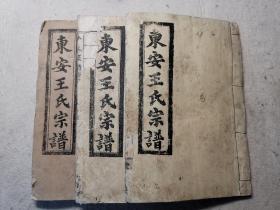 東安王氏宗譜
東安王氏宗譜
東安王氏宗譜